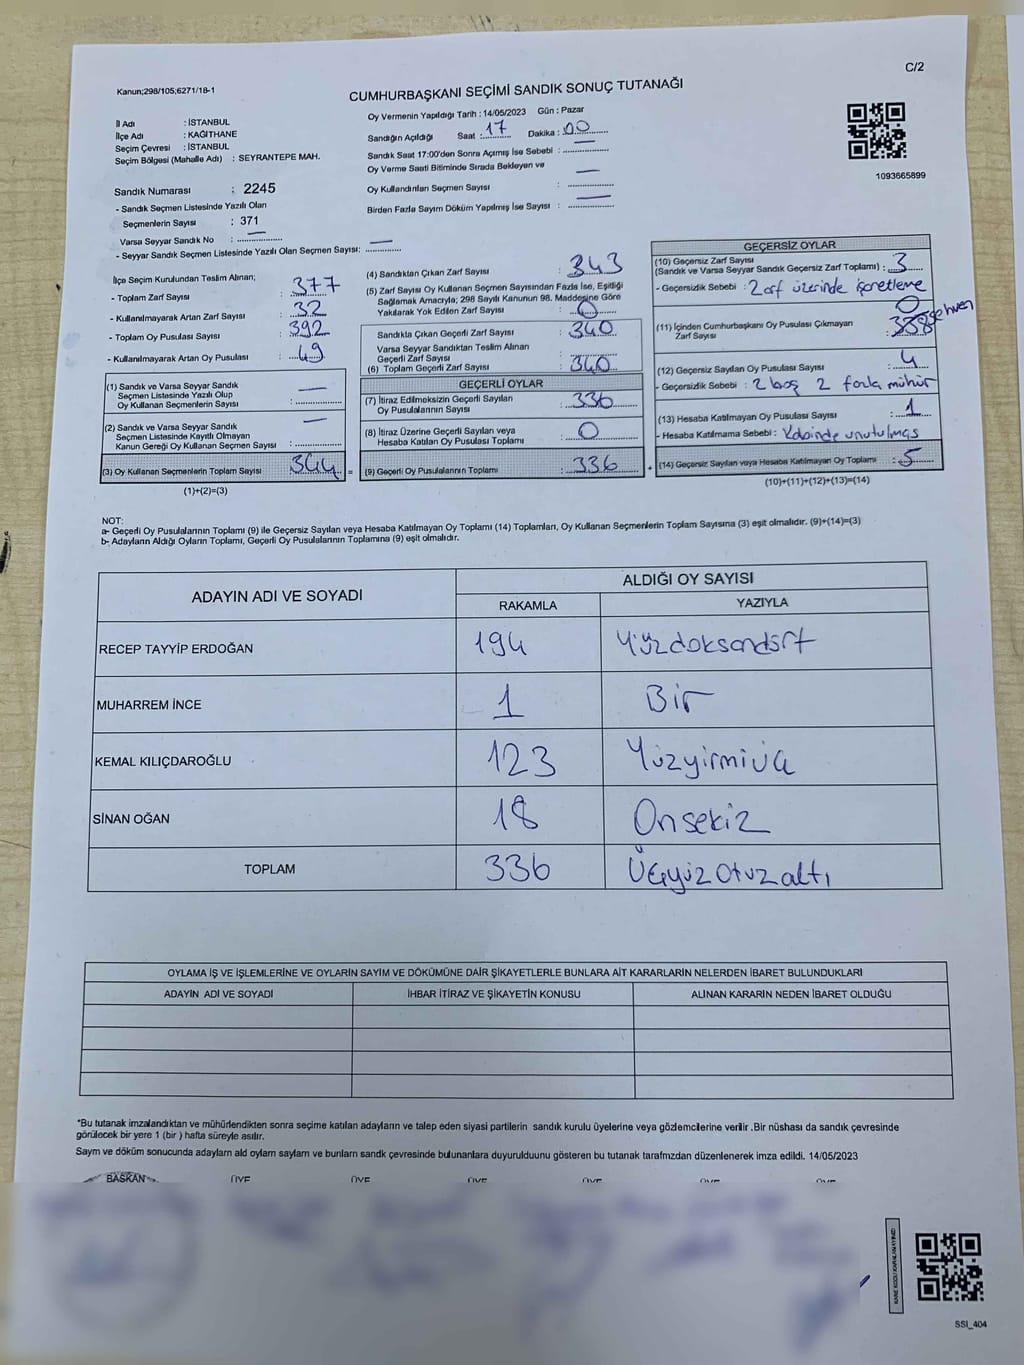 C/2
Kanun;298/105;6271/18-1
CUMHURBAŞKANI SEÇİMİ SANDIK SONUÇ TUTANAĞI
İl Adı : İSTANBUL
İlçe Adı : KAĞITHANE
Seçim Çevresi : İSTANBUL
Seçim Bölgesi (Mahalle Adı) : SEYRANTEPE MAH.
Sandık Numarası : 2245
- Sandık Seçmen Listesinde Yazılı Olan
Seçmenlerin Sayısı : 371
Varsa Seyyar Sandık No : —
- Seyyar Sandık Seçmen Listesinde Yazılı Olan Seçmen Sayısı: —
Oy Vermenin Yapıldığı Tarih : 14/05/2023 Gün : Pazar
Sandığın Açıldığı Saat : 17 Dakika : 00
Sandık Saat 17:00'den Sonra Açımış İse Sebebi : —
Oy Verme Saati Bitiminde Sırada Bekleyen ve
Oy Kullandırılan Seçmen Sayısı : —
Birden Fazla Sayım Döküm Yapılmış İse Sayısı : —
1093665899
İlçe Seçim Kurulundan Teslim Alınan;
- Toplam Zarf Sayısı : 377
- Kullanılmayarak Artan Zarf Sayısı : 32
- Toplam Oy Pusulası Sayısı : 392
- Kullanılmayarak Artan Oy Pusulası : 49
(1) Sandık ve Varsa Seyyar Sandık
Seçmen Listesinde Yazılı Olup
Oy Kullanan Seçmenlerin Sayısı : —
(2) Sandık ve Varsa Seyyar Sandık
Seçmen Listesinde Kayıtlı Olmayan
Kanun Gereği Oy Kullanan Seçmen Sayısı : —
(3) Oy Kullanan Seçmenlerin Toplam Sayısı : 344 =
(1)+(2)=(3)
(4) Sandıktan Çıkan Zarf Sayısı : 343
(5) Zarf Sayısı Oy Kullanan Seçmen Sayısından Fazla İse, Eşitliği
Sağlamak Amacıyla; 298 Sayılı Kanunun 98. Maddesine Göre
Yakılarak Yok Edilen Zarf Sayısı : 0
Sandıkta Çıkan Geçerli Zarf Sayısı : 340
Varsa Seyyar Sandıktan Teslim Alınan
Geçerli Zarf Sayısı :
(6) Toplam Geçerli Zarf Sayısı : 340
GEÇERLİ OYLAR
(7) İtiraz Edilmeksizin Geçerli Sayılan
Oy Pusulalarının Sayısı : 336
(8) İtiraz Üzerine Geçerli Sayılan veya
Hesaba Katılan Oy Pusulası Toplamı : 0
(9) Geçerli Oy Pusulalarının Toplamı : 336 +
GEÇERSİZ OYLAR
(10) Geçersiz Zarf Sayısı
(Sandık ve Varsa Seyyar Sandık Geçersiz Zarf Toplamı) : 3
- Geçersizlik Sebebi : Zarf üzerinde işaretleme
0
(11) İçinden Cumhurbaşkanı Oy Pusulası Çıkmayan
Zarf Sayısı : 338 sehven
(12) Geçersiz Sayılan Oy Pusulası Sayısı : 4
- Geçersizlik Sebebi : 2 boş 2 fazla mühür
(13) Hesaba Katılmayan Oy Pusulası Sayısı : 1
- Hesaba Katılmama Sebebi : Kabinde unutulmaş
(14) Geçersiz Sayılan veya Hesaba Katılmayan Oy Toplamı : 5
(10)+(11)+(12)+(13)=(14)
NOT:
a- Geçerli Oy Pusulalarının Toplamı (9) ile Geçersiz Sayılan veya Hesaba Katılmayan Oy Toplamı (14) Toplamları, Oy Kullanan Seçmenlerin Toplam Sayısına (3) eşit olmalıdır. (9)+(14)=(3)
b- Adayların Aldığı Oyların Toplamı, Geçerli Oy Pusulalarının Toplamına (9) eşit olmalıdır.
ADAYIN ADI VE SOYADI ALDIĞI OY SAYISI
RAKAMLA YAZIYLA
RECEP TAYYİP ERDOĞAN 194 Yüzdoksandört
MUHARREM İNCE 1 Bir
KEMAL KILIÇDAROĞLU 123 Yüzyirmiüç
SİNAN OĞAN 18 Onsekiz
TOPLAM 336 Üçyüzotuzaltı
OYLAMA İŞ VE İŞLEMLERİNE VE OYLARIN SAYIM VE DÖKÜMÜNE DAİR ŞİKAYETLERLE BUNLARA AİT KARARLARIN NELERDEN İBARET BULUNDUKLARI
ADAYIN ADI VE SOYADI İHBAR İTİRAZ VE ŞİKAYETİN KONUSU ALINAN KARARIN NEDEN İBARET OLDUĞU
*Bu tutanak imzalandıktan ve mühürlendikten sonra seçime katılan adayların ve talep eden siyasi partilerin sandık kurulu üyelerine veya gözlemcilerine verilir .Bir nüshası da sandık çevresinde
görülecek bir yere 1 (bir ) hafta süreyle asılır.
Sayım ve döküm sonucunda adayların ald oyların sayları ve bunların sandk çevresinde bulunanlara duyurulduunu gösteren bu tutanak tarafmzdan düzenlenerek imza edildi. 14/05/2023
BAŞKAN ÜYE ÜYE ÜYE ÜYE ÜYE ÜYE
KARE KODU KARALAMAYINIZ!
SSI_404